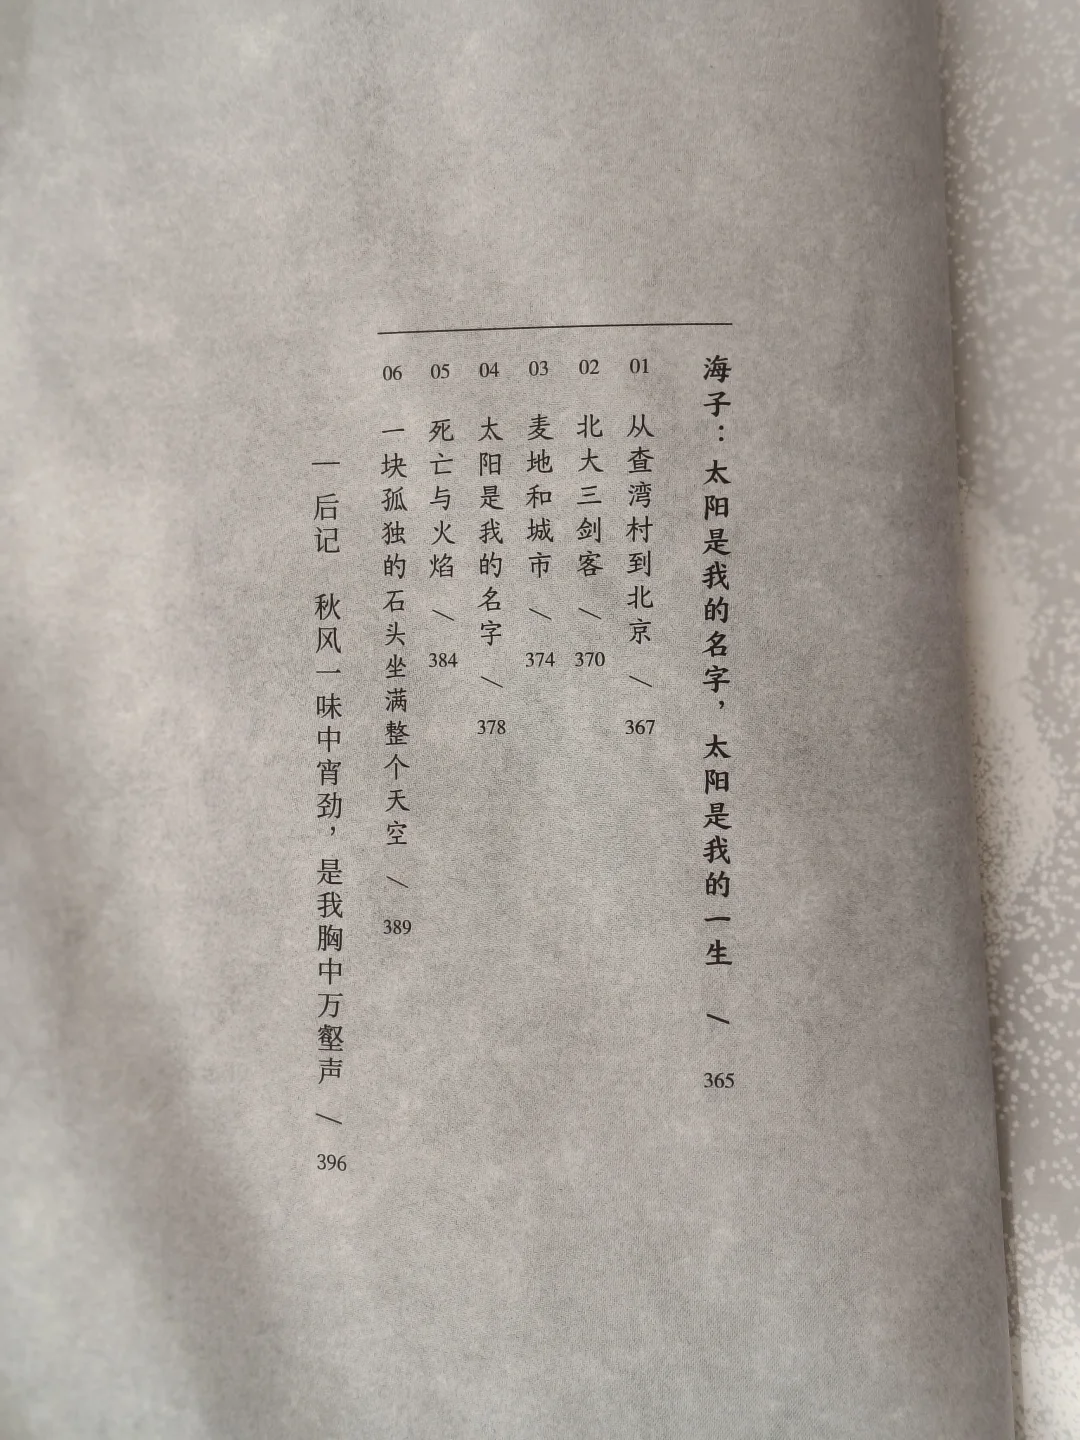 海子：太阳是我的名字，太阳是我的一生 / 365
01 从查湾村到北京 / 367
02 北大三剑客 / 370
03 麦地和城市 / 374
04 太阳是我的名字 / 378
05 死亡与火焰 / 384
06 一块孤独的石头坐满整个天空 / 389
— 后记 秋风一味中宵劲，是我胸中万壑声 / 396